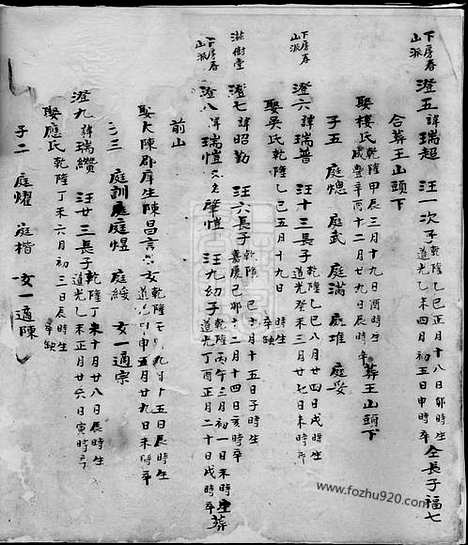 下房春
山派
澄五諱瑞超 汪一次子 乾隆乙巳正月十八日卯時生 仝長子福七
道光乙未四月初五日申時卒
合葬王山頭下
娶樓氏 乾隆甲辰三月十九日酉時生
咸豐辛酉十二月初八日辰時卒 葬王山頭下
子五 庭熜 庭武 庭滿 庭堆 庭妥
下房春
山派
澄六諱瑞普 汪十三長子 乾隆乙巳八月廿四日戌時生
道光癸未三月廿七日未時卒
娶吳氏 乾隆乙巳五月十九日 時生
卒缺
滋樹堂
澄七諱昭勤 汪六長子 乾隆 巳 月十五日子時生
嘉慶己卯十二月十四日亥時卒
下房春
山派
澄八諱瑞愷又名肇愷 汪九幼子 乾隆丙午三月初一日未時生
道光丁酉正月二十日戌時卒 葬
前山
娶大陳郡庠生陳昌言之女 乾隆 九月十五日辰時生
道光 申五月廿九日未時卒
子三 庭訓 庭煜 庭綏 女一適宗
澄九諱瑞纘 汪廿三長子 乾隆丁未十月廿八日辰時生
道光乙未正月廿六日寅時卒
娶應氏 乾隆丁未六月初三日辰時生
卒缺
子二 庭燿 庭楷 女一適陳
www.fozhu920.com